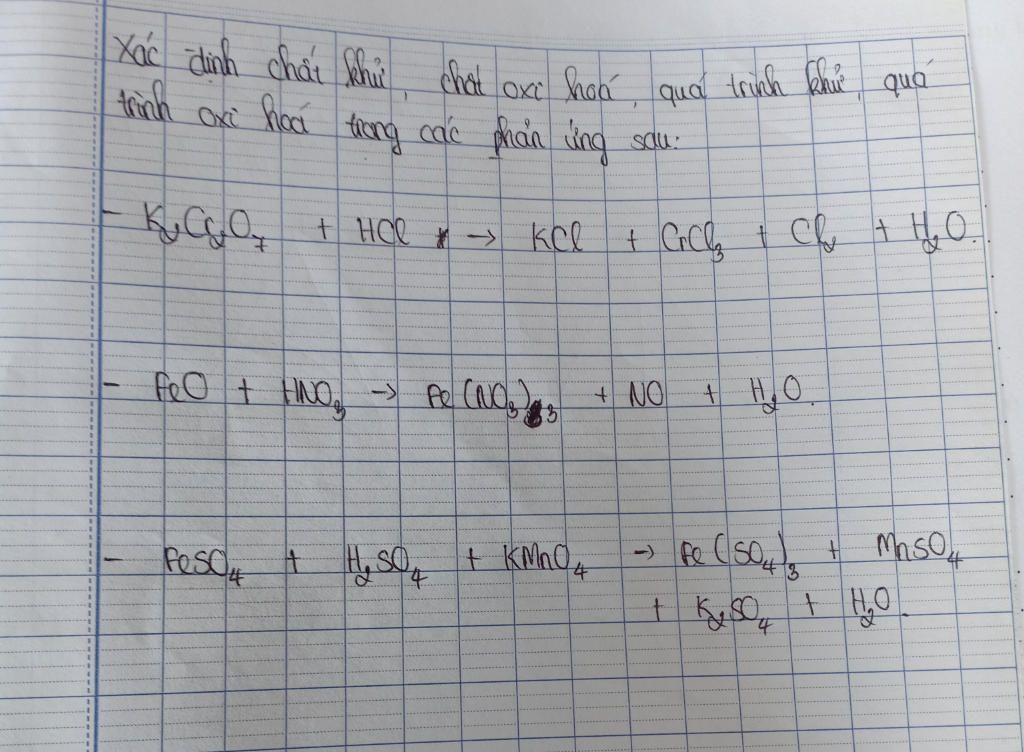 Xác định chất khử, chất oxi hoá, quá trình khử, quá
trình oxi hoá trong các phản ứng sau:
- K₂Cr₂O₇ + HCl → KCl + CrCl₃ + Cl₂ + H₂O.
- FeO + HNO₃ → Fe(NO₃)₃ + NO + H₂O.
- FeSO₄ + H₂SO₄ + KMnO₄ → Fe(SO₄)₃ + MnSO₄
+ K₂SO₄ + H₂O.